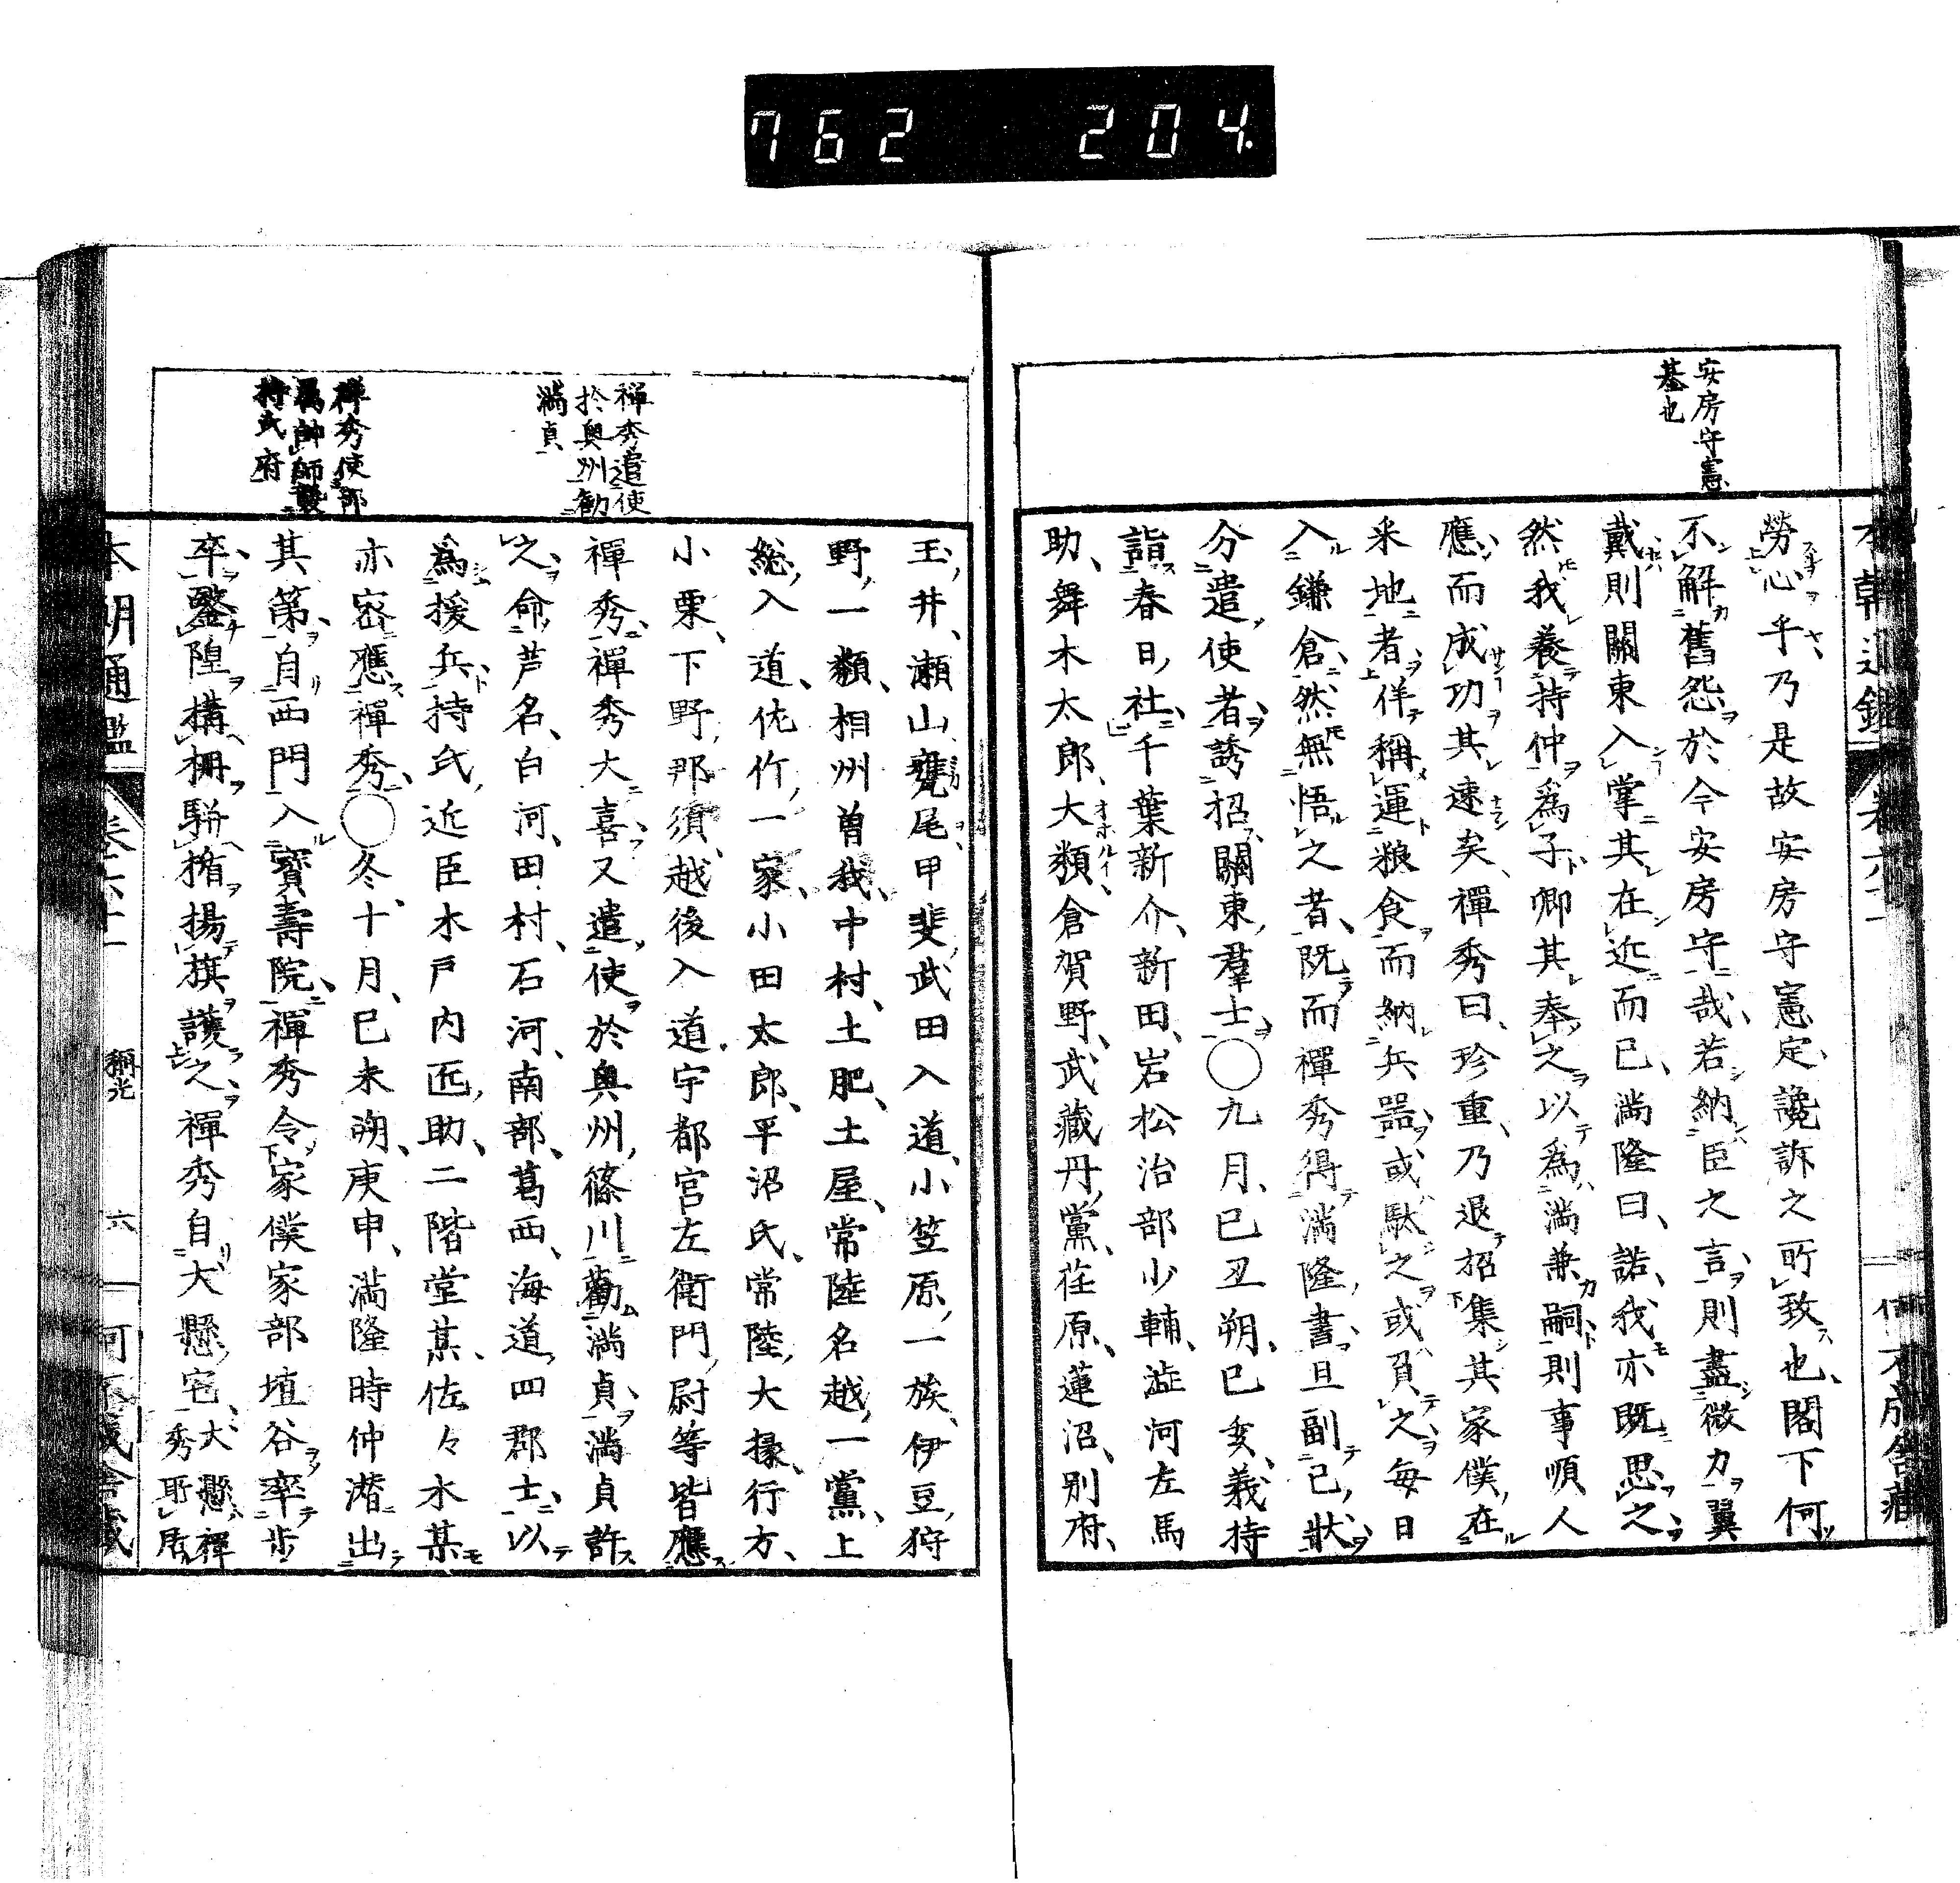 762 204.
安房守憲
基也
勞心乎乃是故安房守憲定讒訴之所致也閣下何
不解舊怨於今安房守哉若納臣之言則盡微力翼
戴則關東入掌其在近而已滿隆曰諾我亦既思之
然我養持仲爲子卿其奉之以爲滿兼嗣則事順人
應而成功其速矣禪秀曰珍重乃退招集其家僕在
釆地者佯稱運粮食而納兵器或駄之或負之每日
入鎌倉然無悟之者既而禪秀得滿隆書且副己狀
分遣使者誘招關東羣士○九月己丑朔己亥義持
詣春日社千葉新介新田岩松治部少輔澁河左馬
助舞木太郎大類倉賀野武藏丹黨荏原蓮沼別府
禪秀遣使
於奥州勸
滿貞
禪秀使部
持氏府
玉井瀬山甕尾甲斐武田入道小笠原一族伊豆狩
野一類相州曽我中村土肥土屋常陸名越一黨上
総入道佐竹一家小田太郎平沼氏常陸大掾行方
小栗下野那須越後入道宇都宮左衛門尉等皆應
禪秀禪秀大喜又遣使於奥州篠川勸滿貞滿貞許
之命芦名白河田村石河南部葛西海道四郡士以
爲援兵持氏近臣木戸内匠助二階堂某佐々木某
亦密應禪秀○冬十月己未朔庚申滿隆時仲潜出
其第自西門入寳壽院禪秀令家僕家部埴谷率步
卒鑿隍構柵駢楯揚旗護之禪秀自犬懸宅犬懸禪
秀所居
本朝通鑑 稱光 六